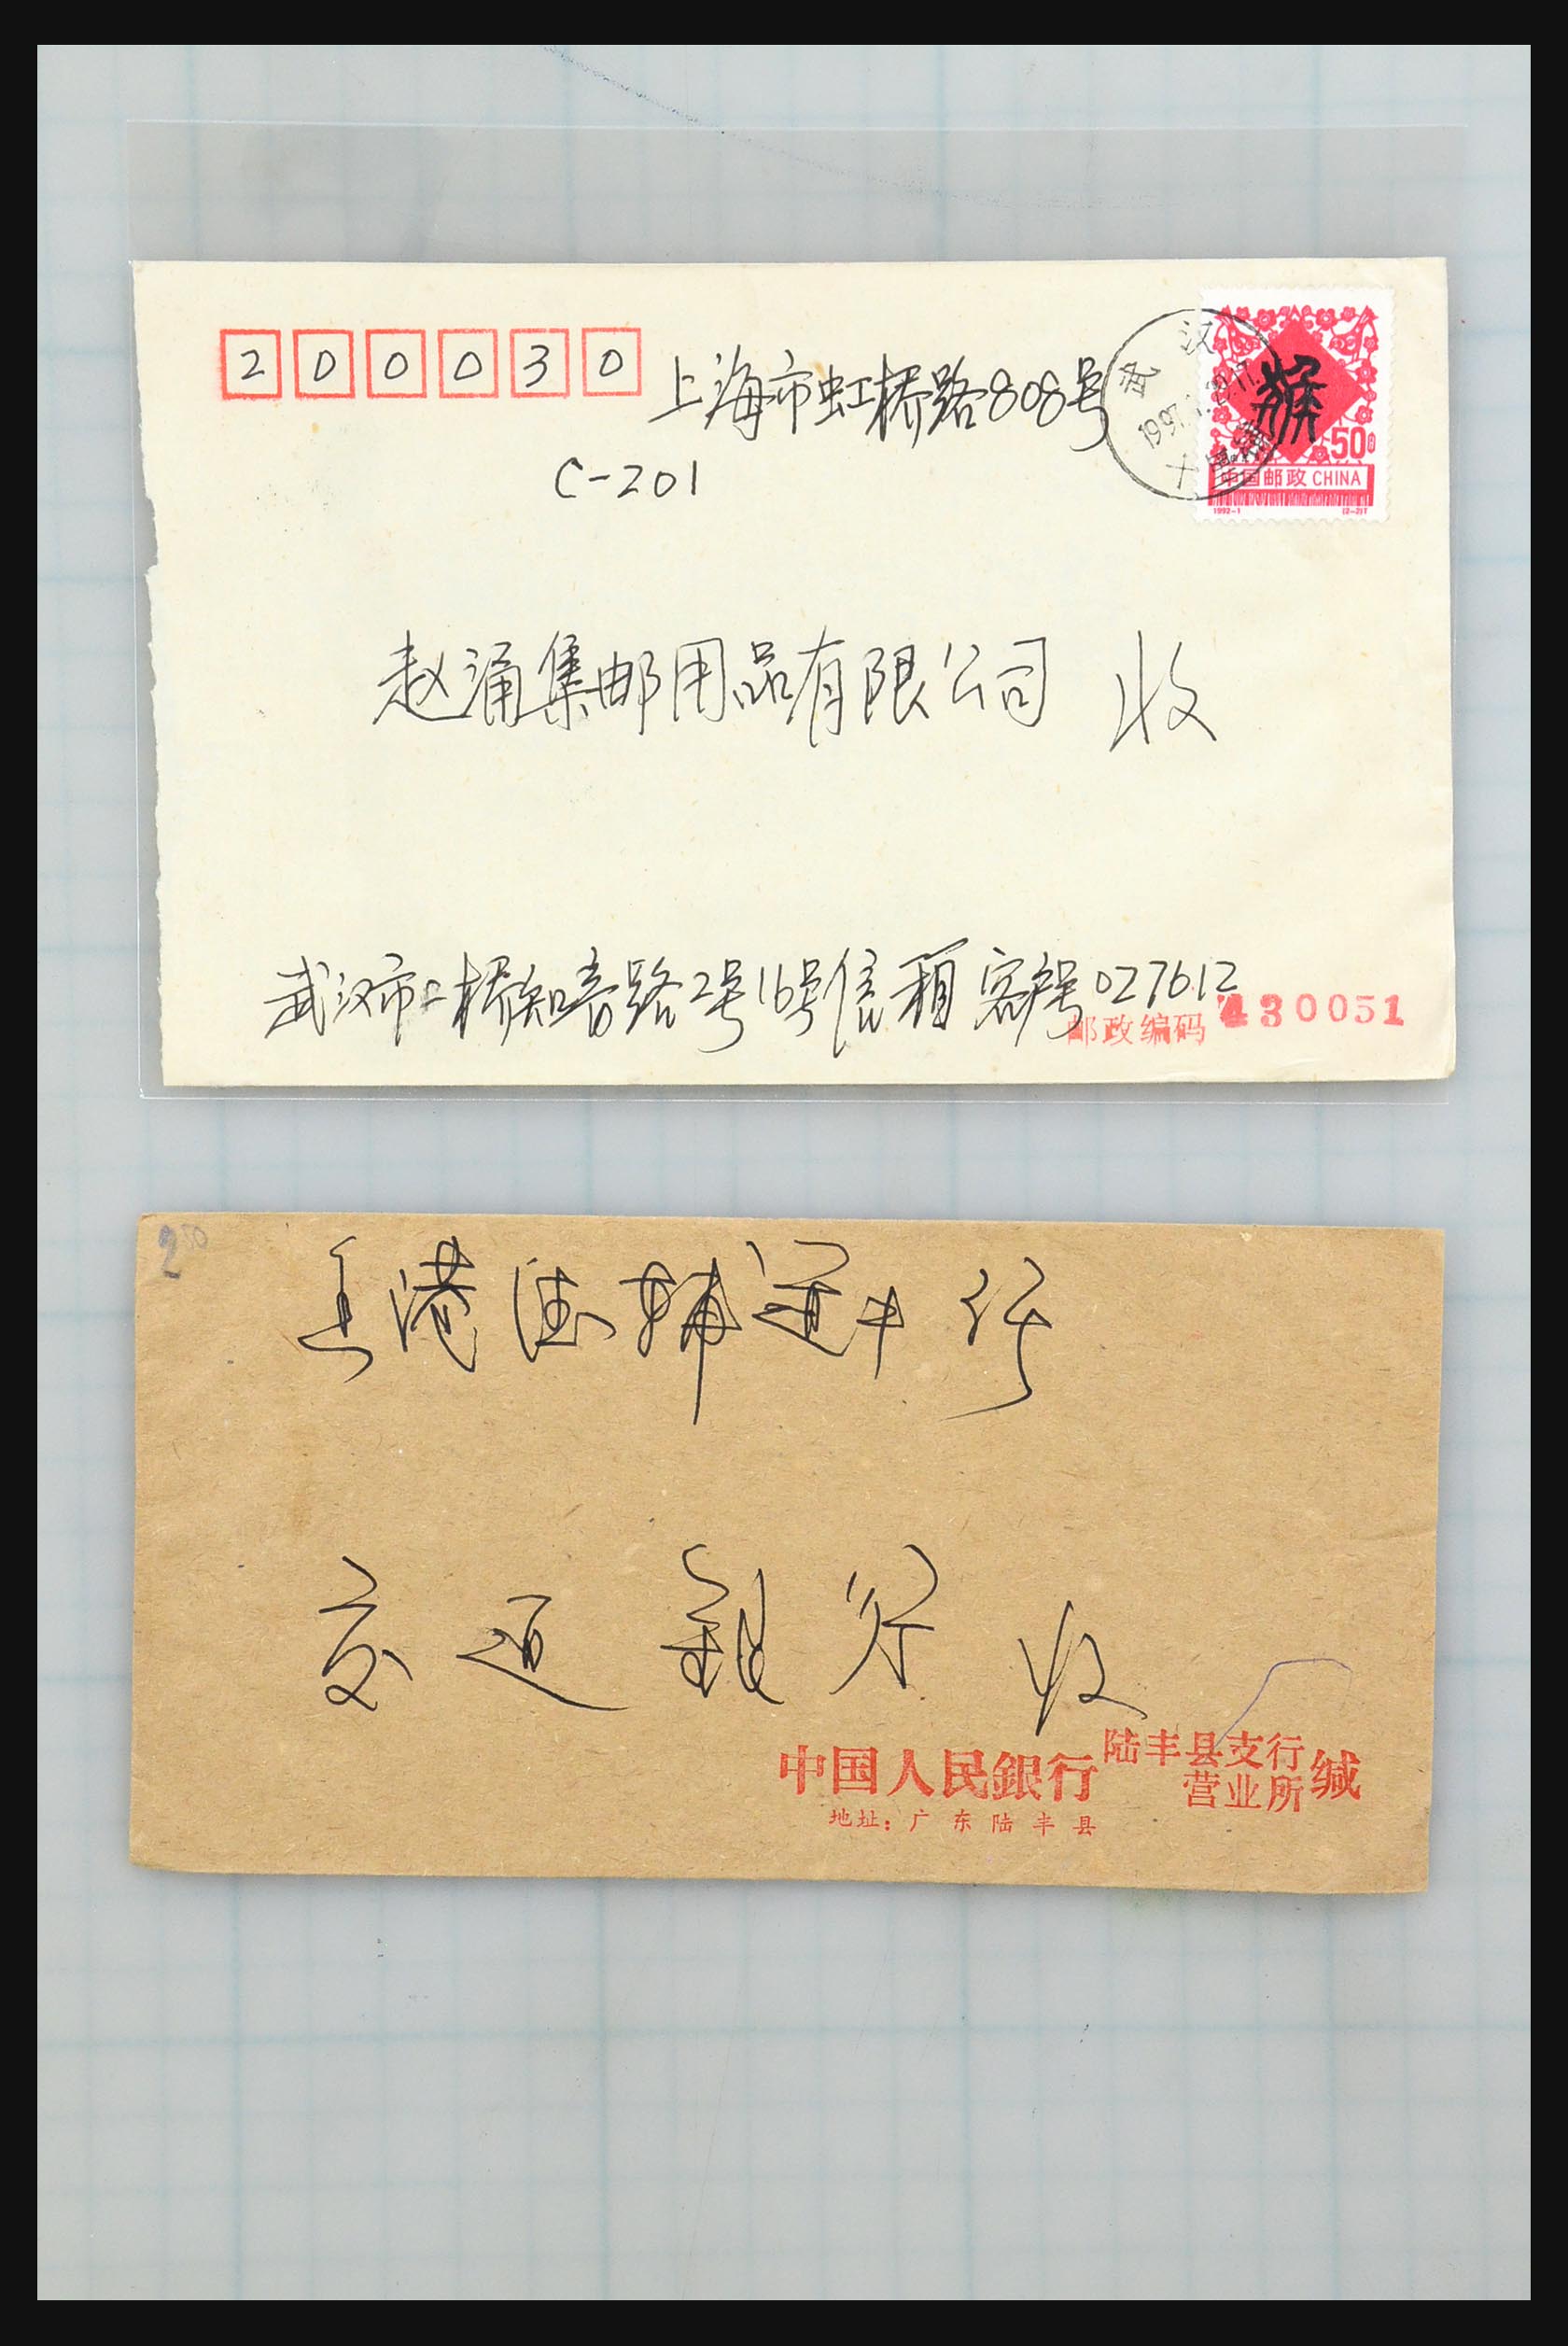 200030
上海市虹桥路808号
C-201
武汉
1997
十里
猴
50分
中国邮政 CHINA
1992-1 (2-2)T
赵涌集邮用品有限公司 收
武汉市二桥知音路2号16号信箱 客户号027612
邮政编码 430051
2 50
香港德辅道中行
交通銀行 收
中国人民銀行 陆丰县支行 营业所 缄
地址：广东陆丰县